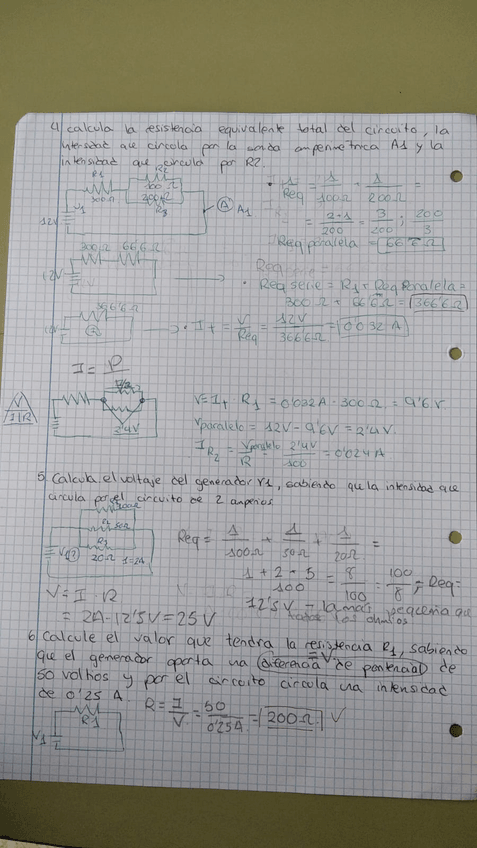 4 calcula la resistencia equivalente total del circuito, la
intensidad que circula por la sonda amperimetrica A1 y la
intensidad que circula por R2.
R1
300Ω
100Ω
200Ω
R3
V1
12V
A A1
1/Req = 1/100Ω + 1/200Ω =
= 2+1/200 = 3/200 ; 200/3
Req paralela = 66'6Ω
300Ω 66'6Ω
12V
Req serie = R1 + Req Paralela =
300Ω + 66'6Ω = 366'6Ω
366'6Ω
12V
· It = V/Req = 12V/366'6Ω = 0'032A
I = P
V
I R
2'4V
V = It · R1 = 0'032A · 300Ω = 9'6V
Vparalelo = 12V - 9'6V = 2'4V
IR2 = Vparalelo/R = 2'4V/100 = 0'024A
5 Calcula el voltaje del generador V1, sabiendo que la intensidad que
circula por el circuito de 2 amperios.
50Ω
20Ω I=2A
Req = 1/100Ω + 1/50Ω + 1/20Ω =
1 + 2 + 5/100 = 8/100 = 100/8 ; Req =
12'5V - la mas pequeña que
todos los ohmios
V = I · R
= 2A · 12'5V = 25V
6 Calcule el valor que tendra la resistencia R1, sabiendo
que el generador aporta una diferencia de potencial de
50 voltios y por el circuito circula una intensidad
de 0'25 A.
R = I/V = 50/0'25A = 200Ω V
R1
V1